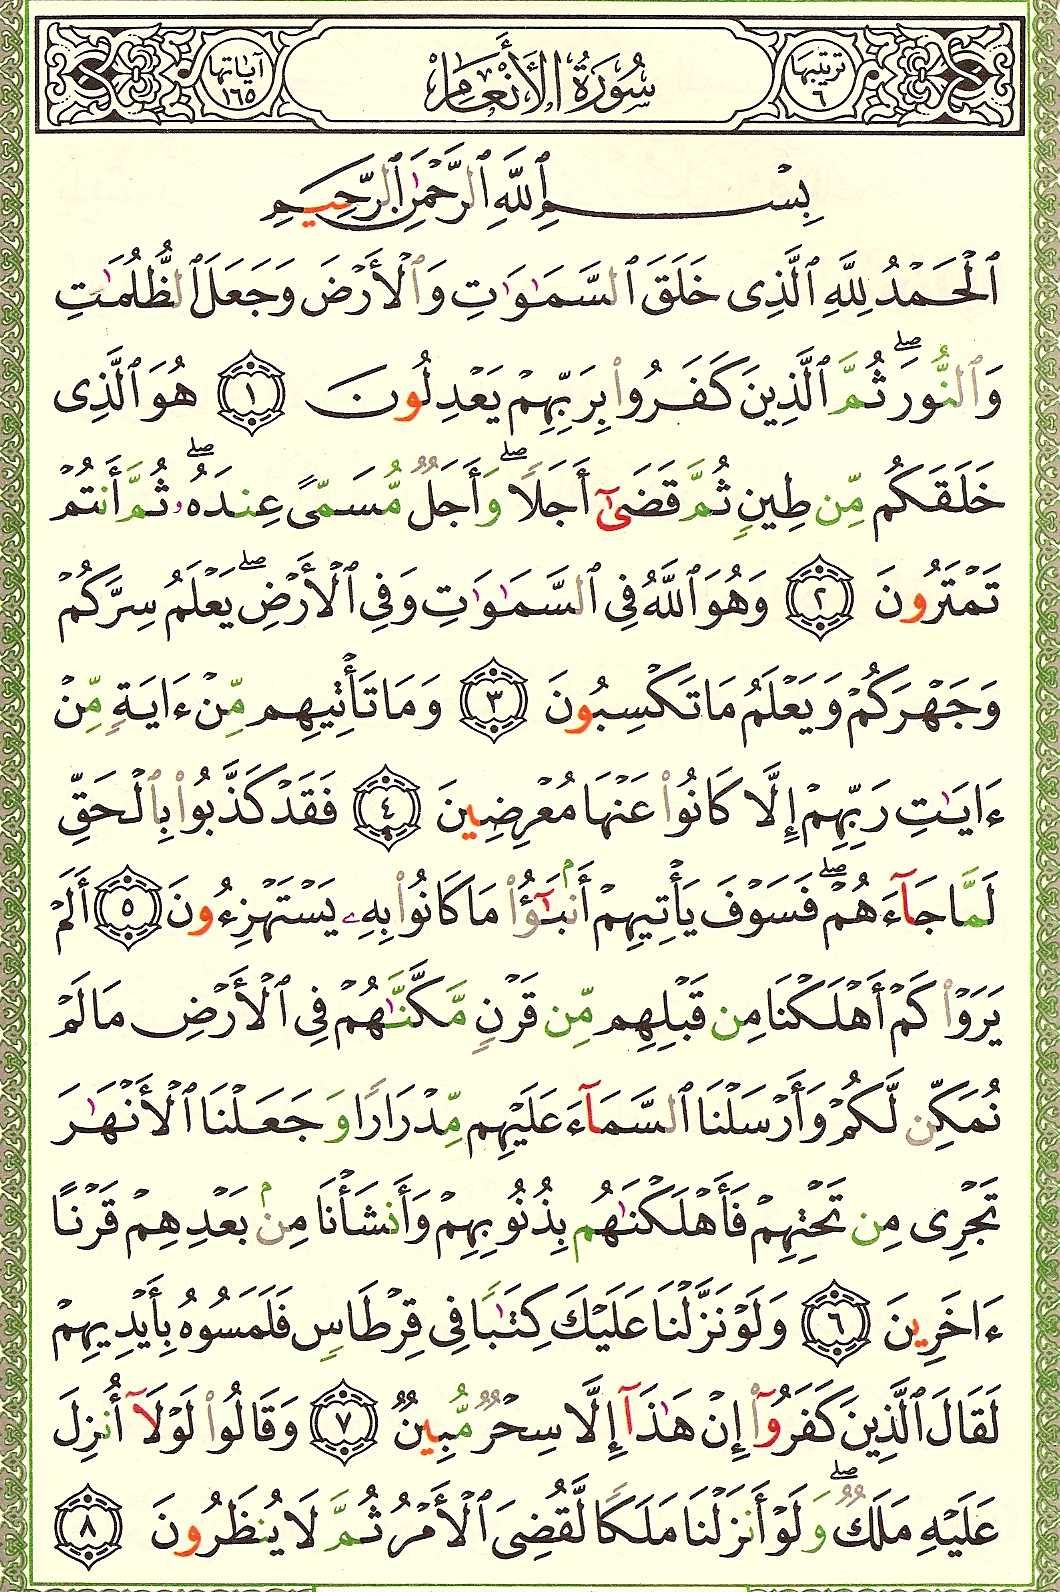 ترتيبها ٦
سُورَةُ الأَنْعَامِ
آياتها ١٦٥
بِسْمِ ٱللَّهِ ٱلرَّحْمَٰنِ ٱلرَّحِيمِ
ٱلْحَمْدُ لِلَّهِ ٱلَّذِى خَلَقَ ٱلسَّمَٰوَٰتِ وَٱلْأَرْضَ وَجَعَلَ ٱلظُّلُمَٰتِ
وَٱلنُّورَ ۖ ثُمَّ ٱلَّذِينَ كَفَرُوا۟ بِرَبِّهِمْ يَعْدِلُونَ ١ هُوَ ٱلَّذِى
خَلَقَكُم مِّن طِينٍ ثُمَّ قَضَىٰٓ أَجَلًا ۖ وَأَجَلٌ مُّسَمًّى عِندَهُۥ ۖ ثُمَّ أَنتُمْ
تَمْتَرُونَ ٢ وَهُوَ ٱللَّهُ فِى ٱلسَّمَٰوَٰتِ وَفِى ٱلْأَرْضِ ۖ يَعْلَمُ سِرَّكُمْ
وَجَهْرَكُمْ وَيَعْلَمُ مَا تَكْسِبُونَ ٣ وَمَا تَأْتِيهِم مِّنْ ءَايَةٍ مِّنْ
ءَايَٰتِ رَبِّهِمْ إِلَّا كَانُوا۟ عَنْهَا مُعْرِضِينَ ٤ فَقَدْ كَذَّبُوا۟ بِٱلْحَقِّ
لَمَّا جَآءَهُمْ ۖ فَسَوْفَ يَأْتِيهِمْ أَنۢبَٰٓؤُا۟ مَا كَانُوا۟ بِهِۦ يَسْتَهْزِءُونَ ٥ أَلَمْ
يَرَوْا۟ كَمْ أَهْلَكْنَا مِن قَبْلِهِم مِّن قَرْنٍ مَّكَّنَّٰهُمْ فِى ٱلْأَرْضِ مَا لَمْ
نُمَكِّن لَّكُمْ وَأَرْسَلْنَا ٱلسَّمَآءَ عَلَيْهِم مِّدْرَارًا وَجَعَلْنَا ٱلْأَنْهَٰرَ
تَجْرِى مِن تَحْتِهِمْ فَأَهْلَكْنَٰهُم بِذُنُوبِهِمْ وَأَنشَأْنَا مِنۢ بَعْدِهِمْ قَرْنًا
ءَاخَرِينَ ٦ وَلَوْ نَزَّلْنَا عَلَيْكَ كِتَٰبًا فِى قِرْطَاسٍ فَلَمَسُوهُ بِأَيْدِيهِمْ
لَقَالَ ٱلَّذِينَ كَفَرُوٓا۟ إِنْ هَٰذَآ إِلَّا سِحْرٌ مُّبِينٌ ٧ وَقَالُوا۟ لَوْلَآ أُنزِلَ
عَلَيْهِ مَلَكٌ ۖ وَلَوْ أَنزَلْنَا مَلَكًا لَّقُضِىَ ٱلْأَمْرُ ثُمَّ لَا يُنظَرُونَ ٨